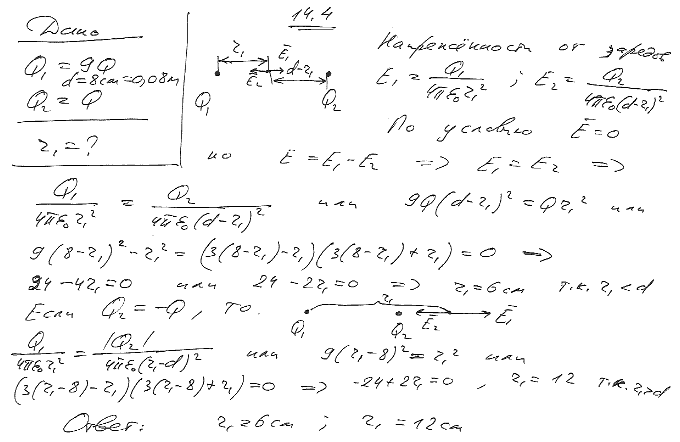 14.4
Дано
Q₁ = 9Q
d = 8см = 0,08м
Q₂ = Q
r₁ = ?
r₁ E̅₁
E̅₂ d-r₁
Q₁ Q₂
Напряжённости от зарядов
E₁ = Q₁/(4πε₀r₁²) ; E₂ = Q₂/(4πε₀(d-r₁)²)
По условию E̅ = 0
но E = E₁ - E₂ => E₁ = E₂ =>
Q₁/(4πε₀r₁²) = Q₂/(4πε₀(d-r₁)²) или 9Q(d-r₁)² = Qr₁² или
9(8-r₁)² - r₁² = (3(8-r₁)-r₁)(3(8-r₁)+r₁) = 0 =>
24 - 4r₁ = 0 или 24 - 2r₁ = 0 => r₁ = 6 см т.к. r₁ < d
Если Q₂ = -Q, то.
r₁
Q₁ Q₂ E̅₂ E̅₁
Q₁/(4πε₀r₁²) = |Q₂|/(4πε₀(r₁-d)²) или 9(r₁-8)² = r₁² или
(3(r₁-8)-r₁)(3(r₁-8)+r₁) = 0 => -24+2r₁ = 0, r₁ = 12 т.к. r₁>d
Ответ: r₁ = 6 см ; r₁ = 12 см